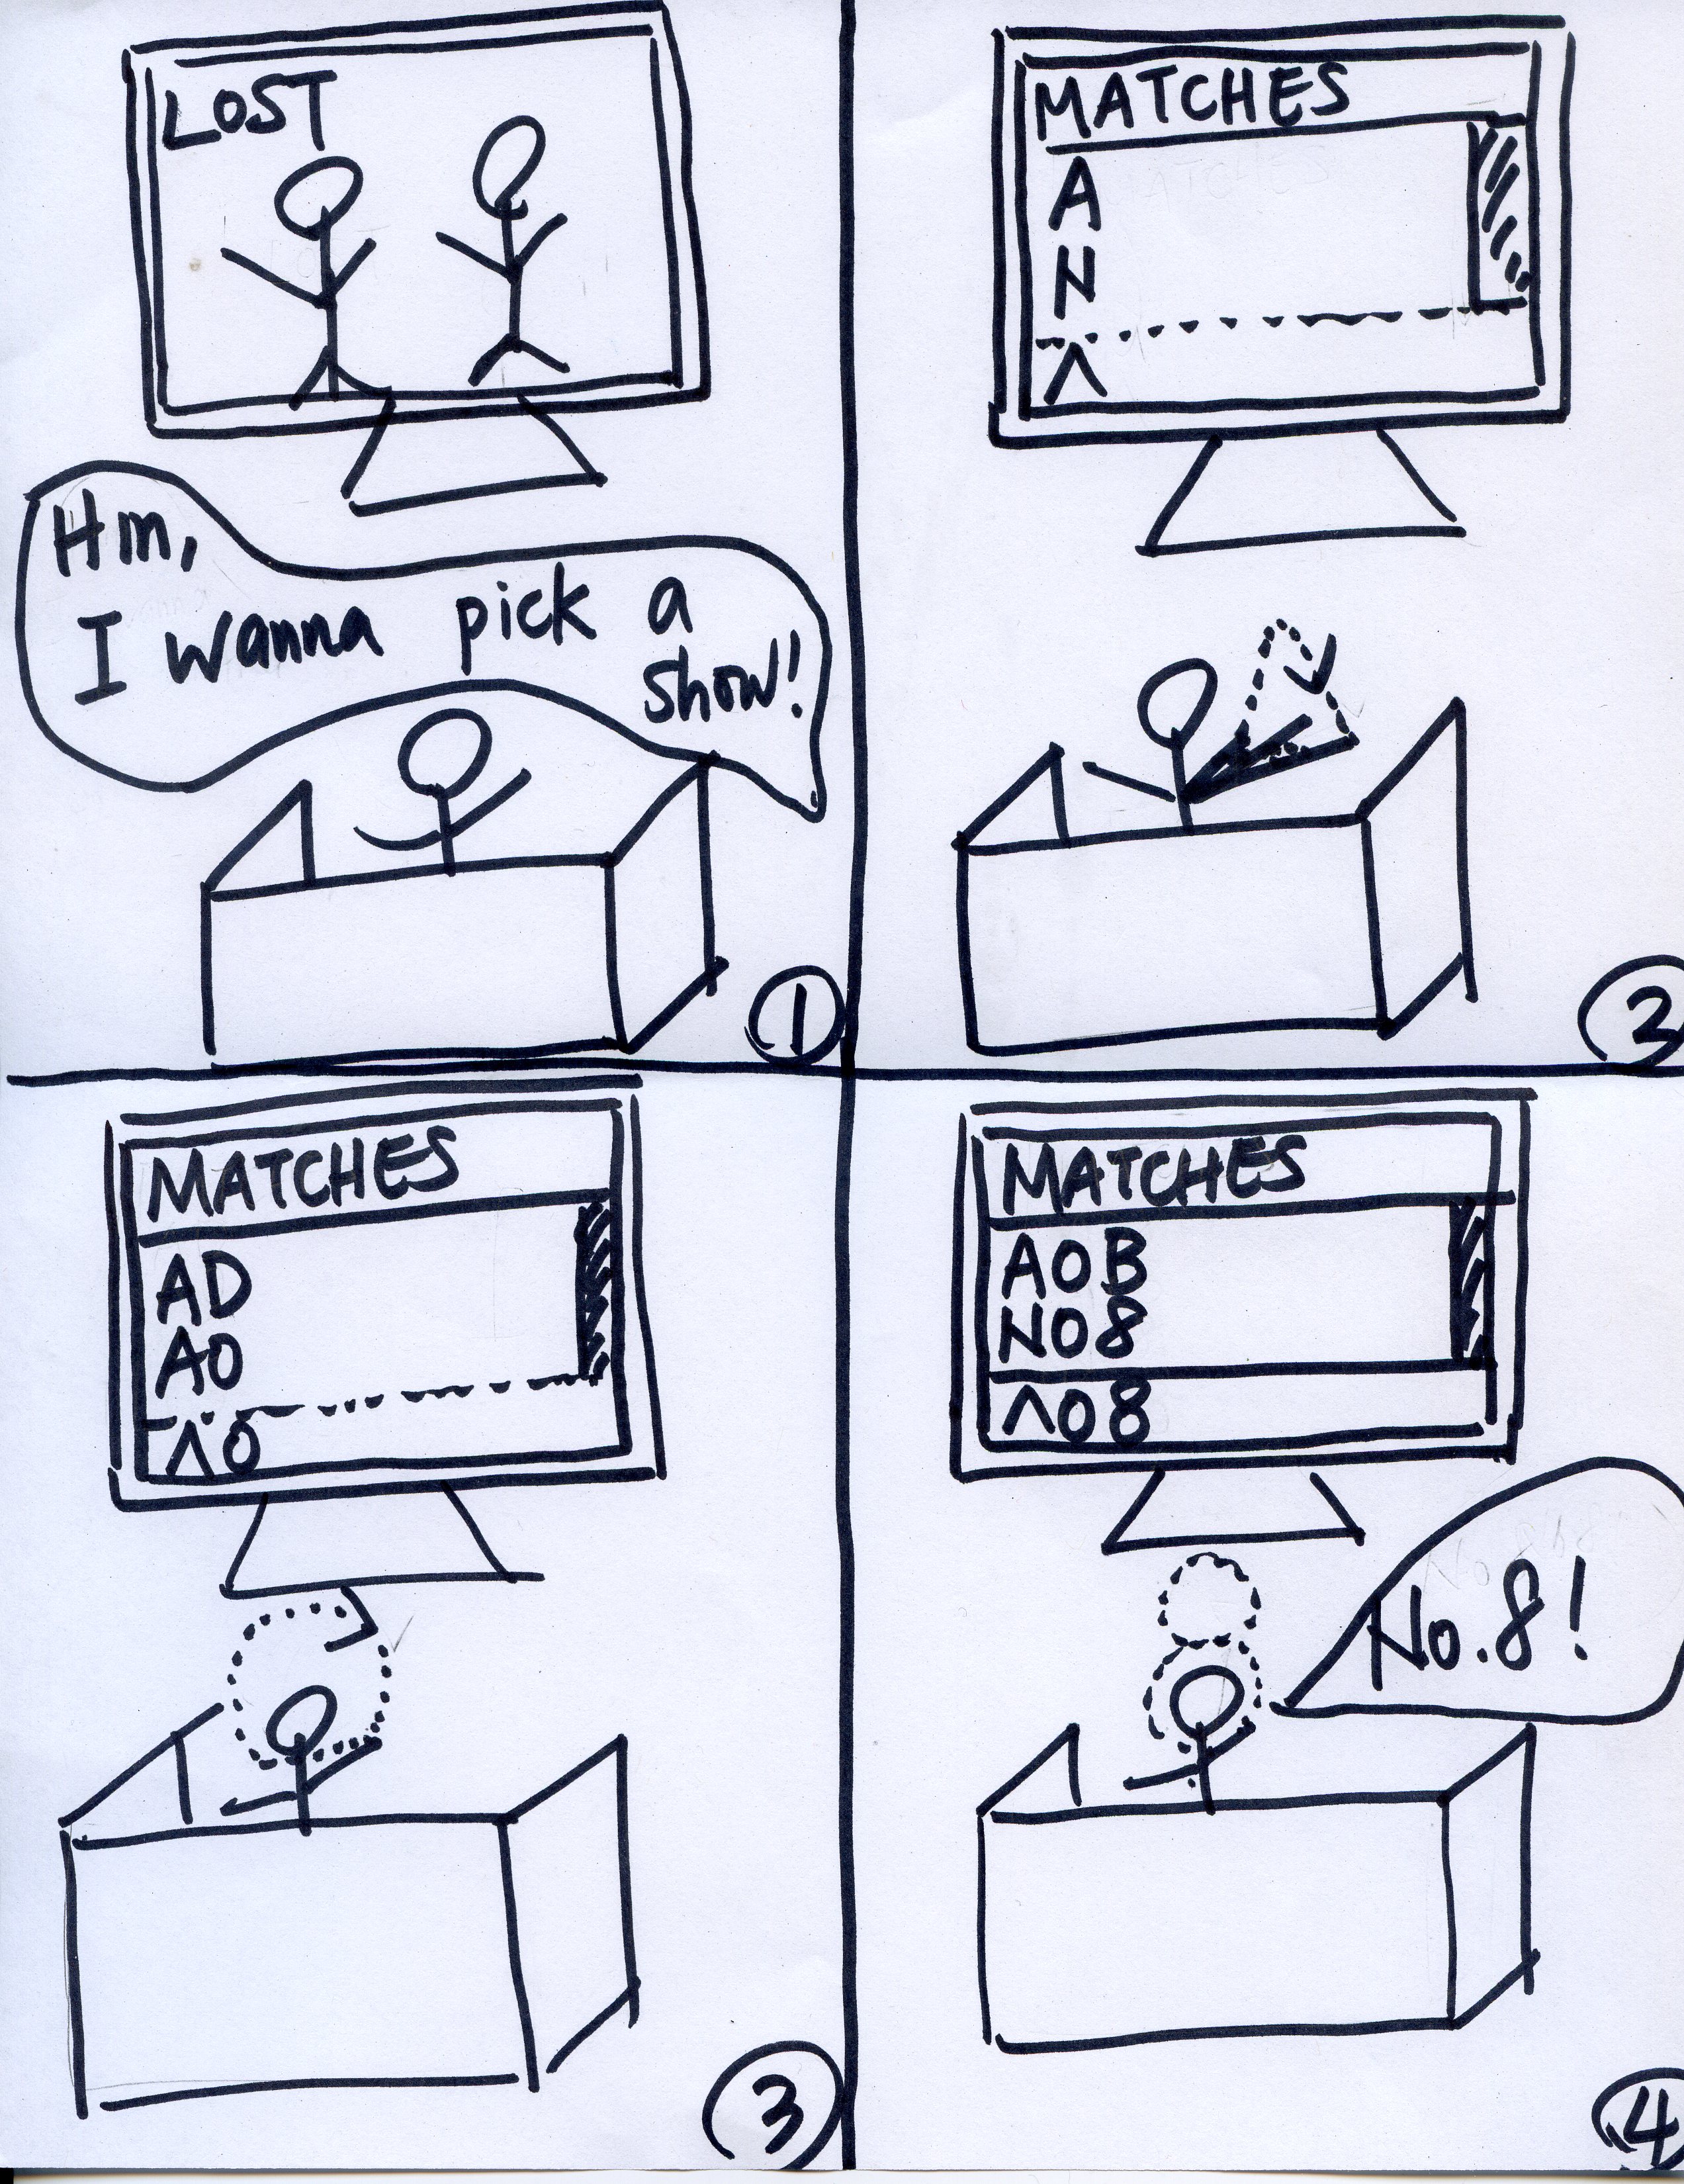 LOST
Hm,
I wanna pick a
show!
1
MATCHES
A
N
Λ
2
MATCHES
AD
AO
ΛO
3
MATCHES
AOB
NO8
ΛO8
No.8!
4